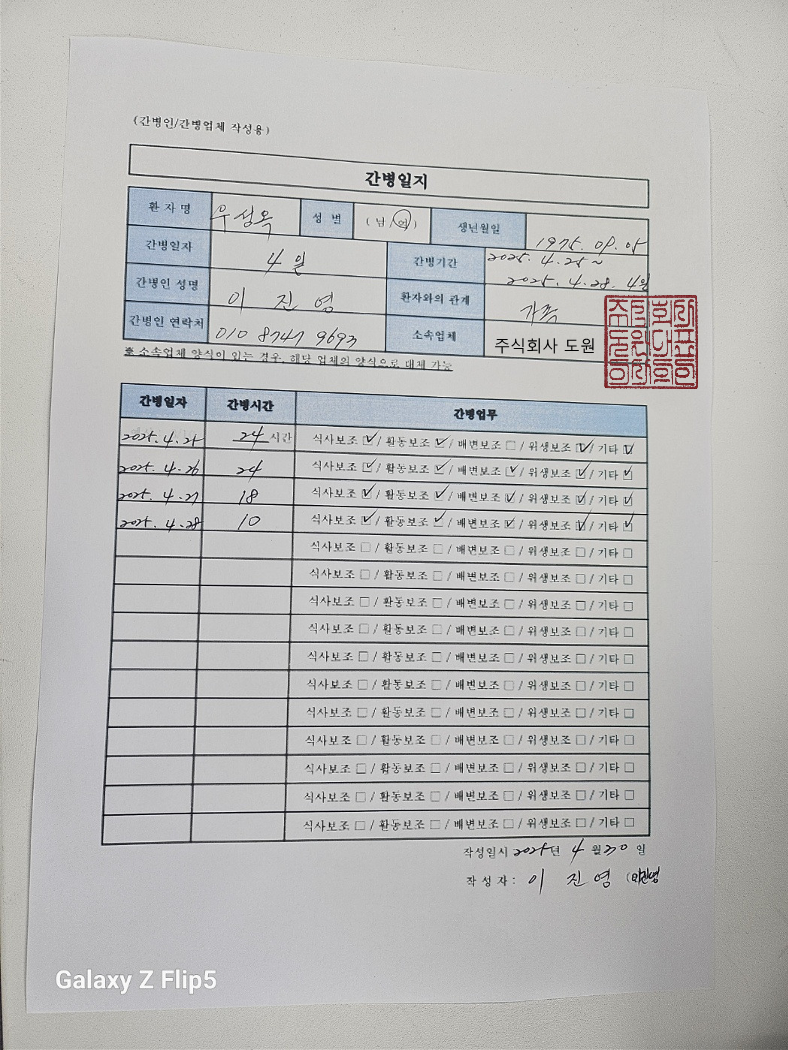 (간병인/간병업체 작성용)
간병일지
환자명 우성옥 성별 (남/여) 생년월일 1975. 09. 05
간병일자 4일 간병기간 2025. 4. 25 ~ 2025. 4. 28. 4일
간병인 성명 이진영 환자와의 관계 가족
간병인 연락처 010 8747 9693 소속업체 주식회사 도원
※ 소속업체 양식이 있는 경우, 해당 업체의 양식으로 대체 가능
간병일자 간병시간 간병업무
2025. 4. 25 24시간 식사보조 ☑ / 활동보조 ☑ / 배변보조 □ / 위생보조 ☑ / 기타 ☑
2025. 4. 26 24 식사보조 ☑ / 활동보조 ☑ / 배변보조 ☑ / 위생보조 ☑ / 기타 ☑
2025. 4. 27 18 식사보조 ☑ / 활동보조 ☑ / 배변보조 ☑ / 위생보조 ☑ / 기타 ☑
2025. 4. 28 10 식사보조 ☑ / 활동보조 ☑ / 배변보조 ☑ / 위생보조 ☑ / 기타 ☑
식사보조 □ / 활동보조 □ / 배변보조 □ / 위생보조 □ / 기타 □
식사보조 □ / 활동보조 □ / 배변보조 □ / 위생보조 □ / 기타 □
식사보조 □ / 활동보조 □ / 배변보조 □ / 위생보조 □ / 기타 □
식사보조 □ / 활동보조 □ / 배변보조 □ / 위생보조 □ / 기타 □
식사보조 □ / 활동보조 □ / 배변보조 □ / 위생보조 □ / 기타 □
식사보조 □ / 활동보조 □ / 배변보조 □ / 위생보조 □ / 기타 □
식사보조 □ / 활동보조 □ / 배변보조 □ / 위생보조 □ / 기타 □
식사보조 □ / 활동보조 □ / 배변보조 □ / 위생보조 □ / 기타 □
식사보조 □ / 활동보조 □ / 배변보조 □ / 위생보조 □ / 기타 □
식사보조 □ / 활동보조 □ / 배변보조 □ / 위생보조 □ / 기타 □
식사보조 □ / 활동보조 □ / 배변보조 □ / 위생보조 □ / 기타 □
작성일시 2025년 4월 30일
작성자: 이진영 (이진영
Galaxy Z Flip5